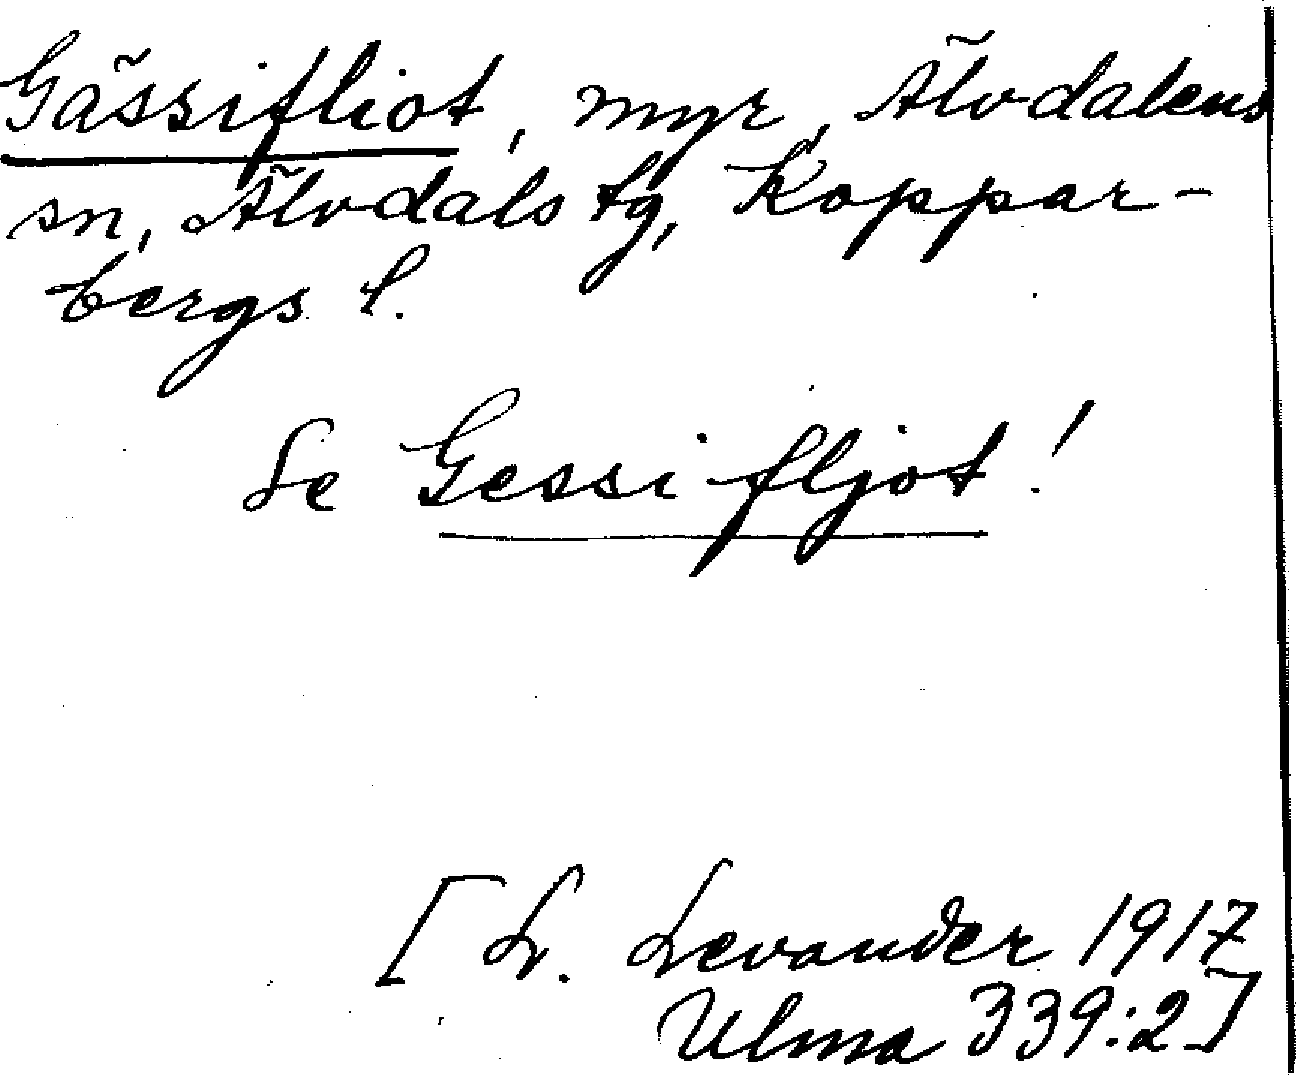 Gässifliot, myr, Älvdalens
sn, Älvdals tg, Koppar-
bergs l.
Se Gessifljot!
[L. Levander 1917
Ulma 339:2]